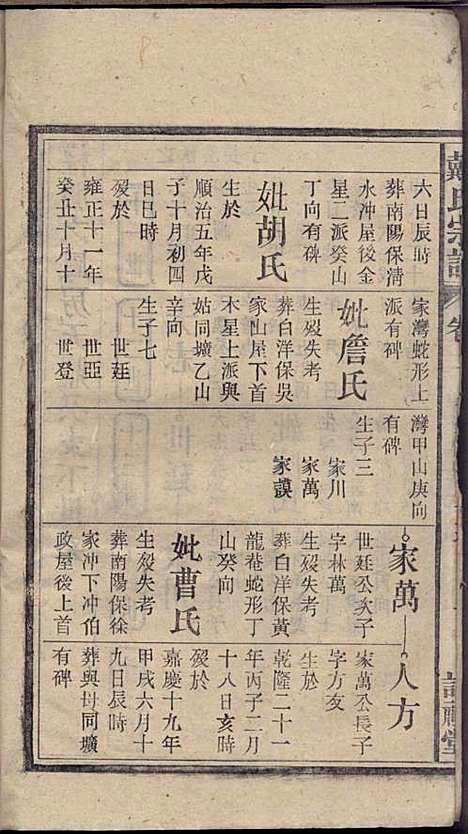 戴氏宗譜
卷
六日辰時
葬南陽保淸
水沖屋後金
星二派癸山
丁向有碑
妣胡氏
生於
順治五年戊
子十月初四
日巳時
歿於
雍正十一年
癸丑十月十
家灣蛇形上
派有碑
妣詹氏
生歿失考
葬白洋保吳
家山屋下首
木星上派與
姑同壙乙山
辛向
生子七
世廷
世亞
世登
灣甲山庚向
有碑
生子三
家川
家萬
家謨
家萬
世廷公次子
字林萬
生歿失考
葬白洋保黃
龍菴蛇形丁
山癸向
妣曹氏
生歿失考
葬南陽保徐
家冲下冲伯
政屋後上首
人方
家萬公長子
字方友
生於
乾隆二十一
年丙子二月
十八日亥時
歿於
嘉慶十九年
甲戌六月十
九日辰時
葬與母同壙
有碑